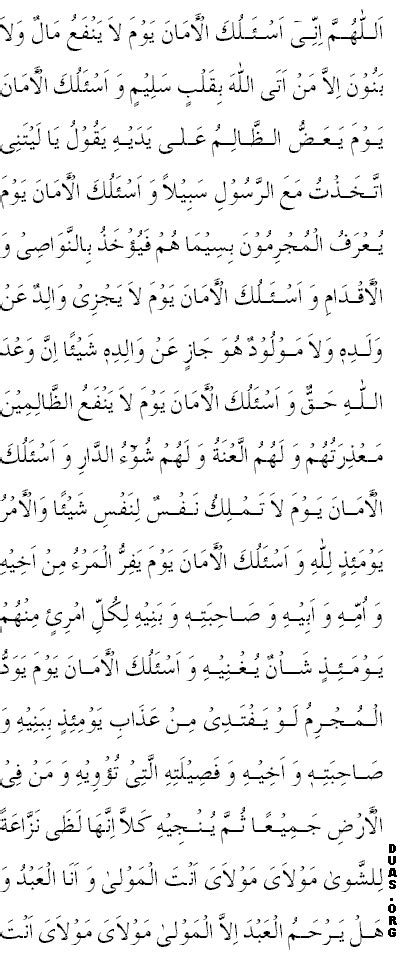 اَللّٰهُمَّ اِنِّیْۤ اَسْئَلُكَ الْاَمَانَ يَوْمَ لاَ يَنْفَعُ مَالٌ وَلاَ
بَنُوْنَ اِلاَّ مَنْ اَتَى اللّٰهَ بِقَلْبٍ سَلِيْمٍ وَ اَسْئَلُكَ الْاَمَانَ
يَوْمَ يَعَضُّ الظَّالِمُ عَلٰى يَدَيْهِ يَقُوْلُ يَا لَيْتَنِى
اتَّخَذْتُ مَعَ الرَّسُوْلِ سَبِيْلاً وَ اَسْئَلُكَ الْاَمَانَ يَوْمَ
يُعْرَفُ الْمُجْرِمُوْنَ بِسِيْمَا هُمْ فَيُؤْخَذُ بِالنَّوَاصِیْ وَ
الْاَقْدَامِ وَ اَسْئَلُكَ الْاَمَانَ يَوْمَ لاَ يَجْزِیْ وَالِدٌ عَنْ
وَلَدِهٖ وَلاَ مَوْلُوْدٌ هُوَ جَازٍ عَنْ وَالِدِهٖ شَيْئًا اِنَّ وَعْدَ
اللّٰهِ حَقٌّ وَ اَسْئَلُكَ الْاَمَانَ يَوْمَ لاَ يَنْفَعُ الظَّالِمِيْنَ
مَعْذِرَتُهُمْ وَ لَهُمُ الَّعْنَةُ وَ لَهُمْ سُوْٓءُ الدَّارِ وَ اَسْئَلُكَ
الْاَمَانَ يَوْمَ لاَ تَمْلِكُ نَفْسٌ لِنَفْسٍ شَيْئًا وَالْاَمْرُ
يَوْمَئِذٍ لِلّٰهِ وَ اَسْئَلُكَ الْاَمَانَ يَوْمَ يَفِرُّ الْمَرْءُ مِنْ اَخِيْهِ
وَ اُمِّهٖ وَ اَبِيْهِ وَ صَاحِبَتِهٖ وَ بَنِيْهِ لِكُلِّ امْرِئٍ مِنْهُمْ
يَوْمَئِذٍ شَاْنٌ يُغْنِيْهِ وَ اَسْئَلُكَ الْاَمَانَ يَوْمَ يَوَدُّ
الْمُجْرِمُ لَوْ يَفْتَدِیْ مِنْ عَذَابِ يَوْمِئِذٍ بِبَنِيْهِ وَ
صَاحِبَتِهٖ وَ اَخِيْهِ وَ فَصِيْلَتِهِ الَّتِیْ تُؤْوِيْهِ وَ مَنْ فِیْ
الْاَرْضِ جَمِيْعًا ثُمَّ يُنْجِيْهِ كَلاَّ اِنَّهَا لَظٰى نَزَّاعَةً
لِلشَّوىٰ مَوْلاَىَ مَوْلاَىَ اَنْتَ الْمَوْلىٰ وَ اَنَا الْعَبْدُ وَ
هَلْ يَرْحَمُ الْعَبْدَ اِلاَّ الْمَوْلىٰ مَوْلاَىَ مَوْلاَىَ اَنْتَ
DUAS.ORG